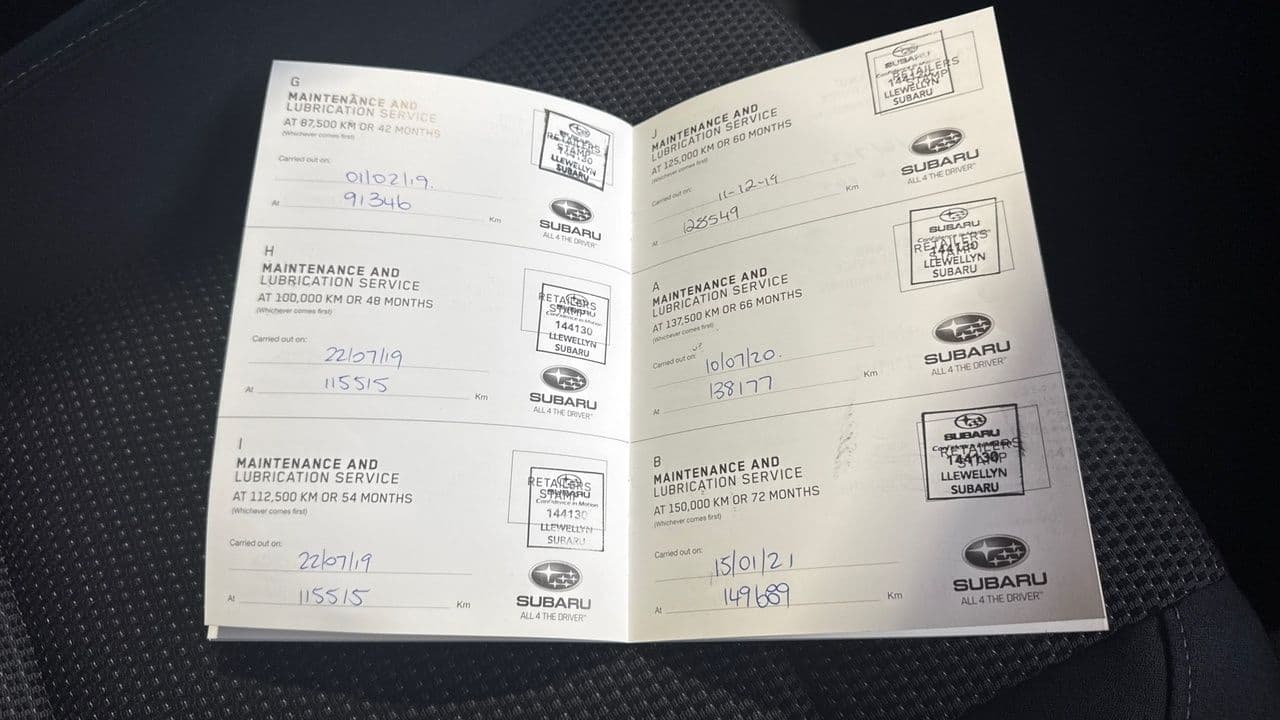 G
MAINTENANCE AND
LUBRICATION SERVICE
AT 87,500 KM OR 42 MONTHS
(Whichever comes first)
Carried out on:
01/02/19.
At 91346 Km
RETAILERS
STAMP
SUBARU
144130
LLEWELLYN
SUBARU
SUBARU
ALL 4 THE DRIVER™
H
MAINTENANCE AND
LUBRICATION SERVICE
AT 100,000 KM OR 48 MONTHS
(Whichever comes first)
Carried out on:
22/07/19
At 115515 Km
RETAILERS
STAMP
SUBARU
Confidence in Motion
144130
LLEWELLYN
SUBARU
SUBARU
ALL 4 THE DRIVER™
I
MAINTENANCE AND
LUBRICATION SERVICE
AT 112,500 KM OR 54 MONTHS
(Whichever comes first)
Carried out on:
22/07/19
At 115515 Km
RETAILERS
STAMP
SUBARU
Confidence in Motion
144130
LLEWELLYN
SUBARU
SUBARU
ALL 4 THE DRIVER™
J
MAINTENANCE AND
LUBRICATION SERVICE
AT 125,000 KM OR 60 MONTHS
(Whichever comes first)
Carried out on: 11-12-19
At Km
RETAILERS
STAMP
SUBARU
Confidence in Motion
144130
LLEWELLYN
SUBARU
SUBARU
ALL 4 THE DRIVER™
A
MAINTENANCE AND
LUBRICATION SERVICE
AT 137,500 KM OR 66 MONTHS
(Whichever comes first)
Carried out on: 10/07/20.
At 138177 Km
RETAILERS
STAMP
SUBARU
Confidence in Motion
144130
LLEWELLYN
SUBARU
SUBARU
ALL 4 THE DRIVER™
B
MAINTENANCE AND
LUBRICATION SERVICE
AT 150,000 KM OR 72 MONTHS
(Whichever comes first)
Carried out on:
15/01/21
At 149689 Km
RETAILERS
STAMP
SUBARU
Confidence in Motion
144130
LLEWELLYN
SUBARU
SUBARU
ALL 4 THE DRIVER™